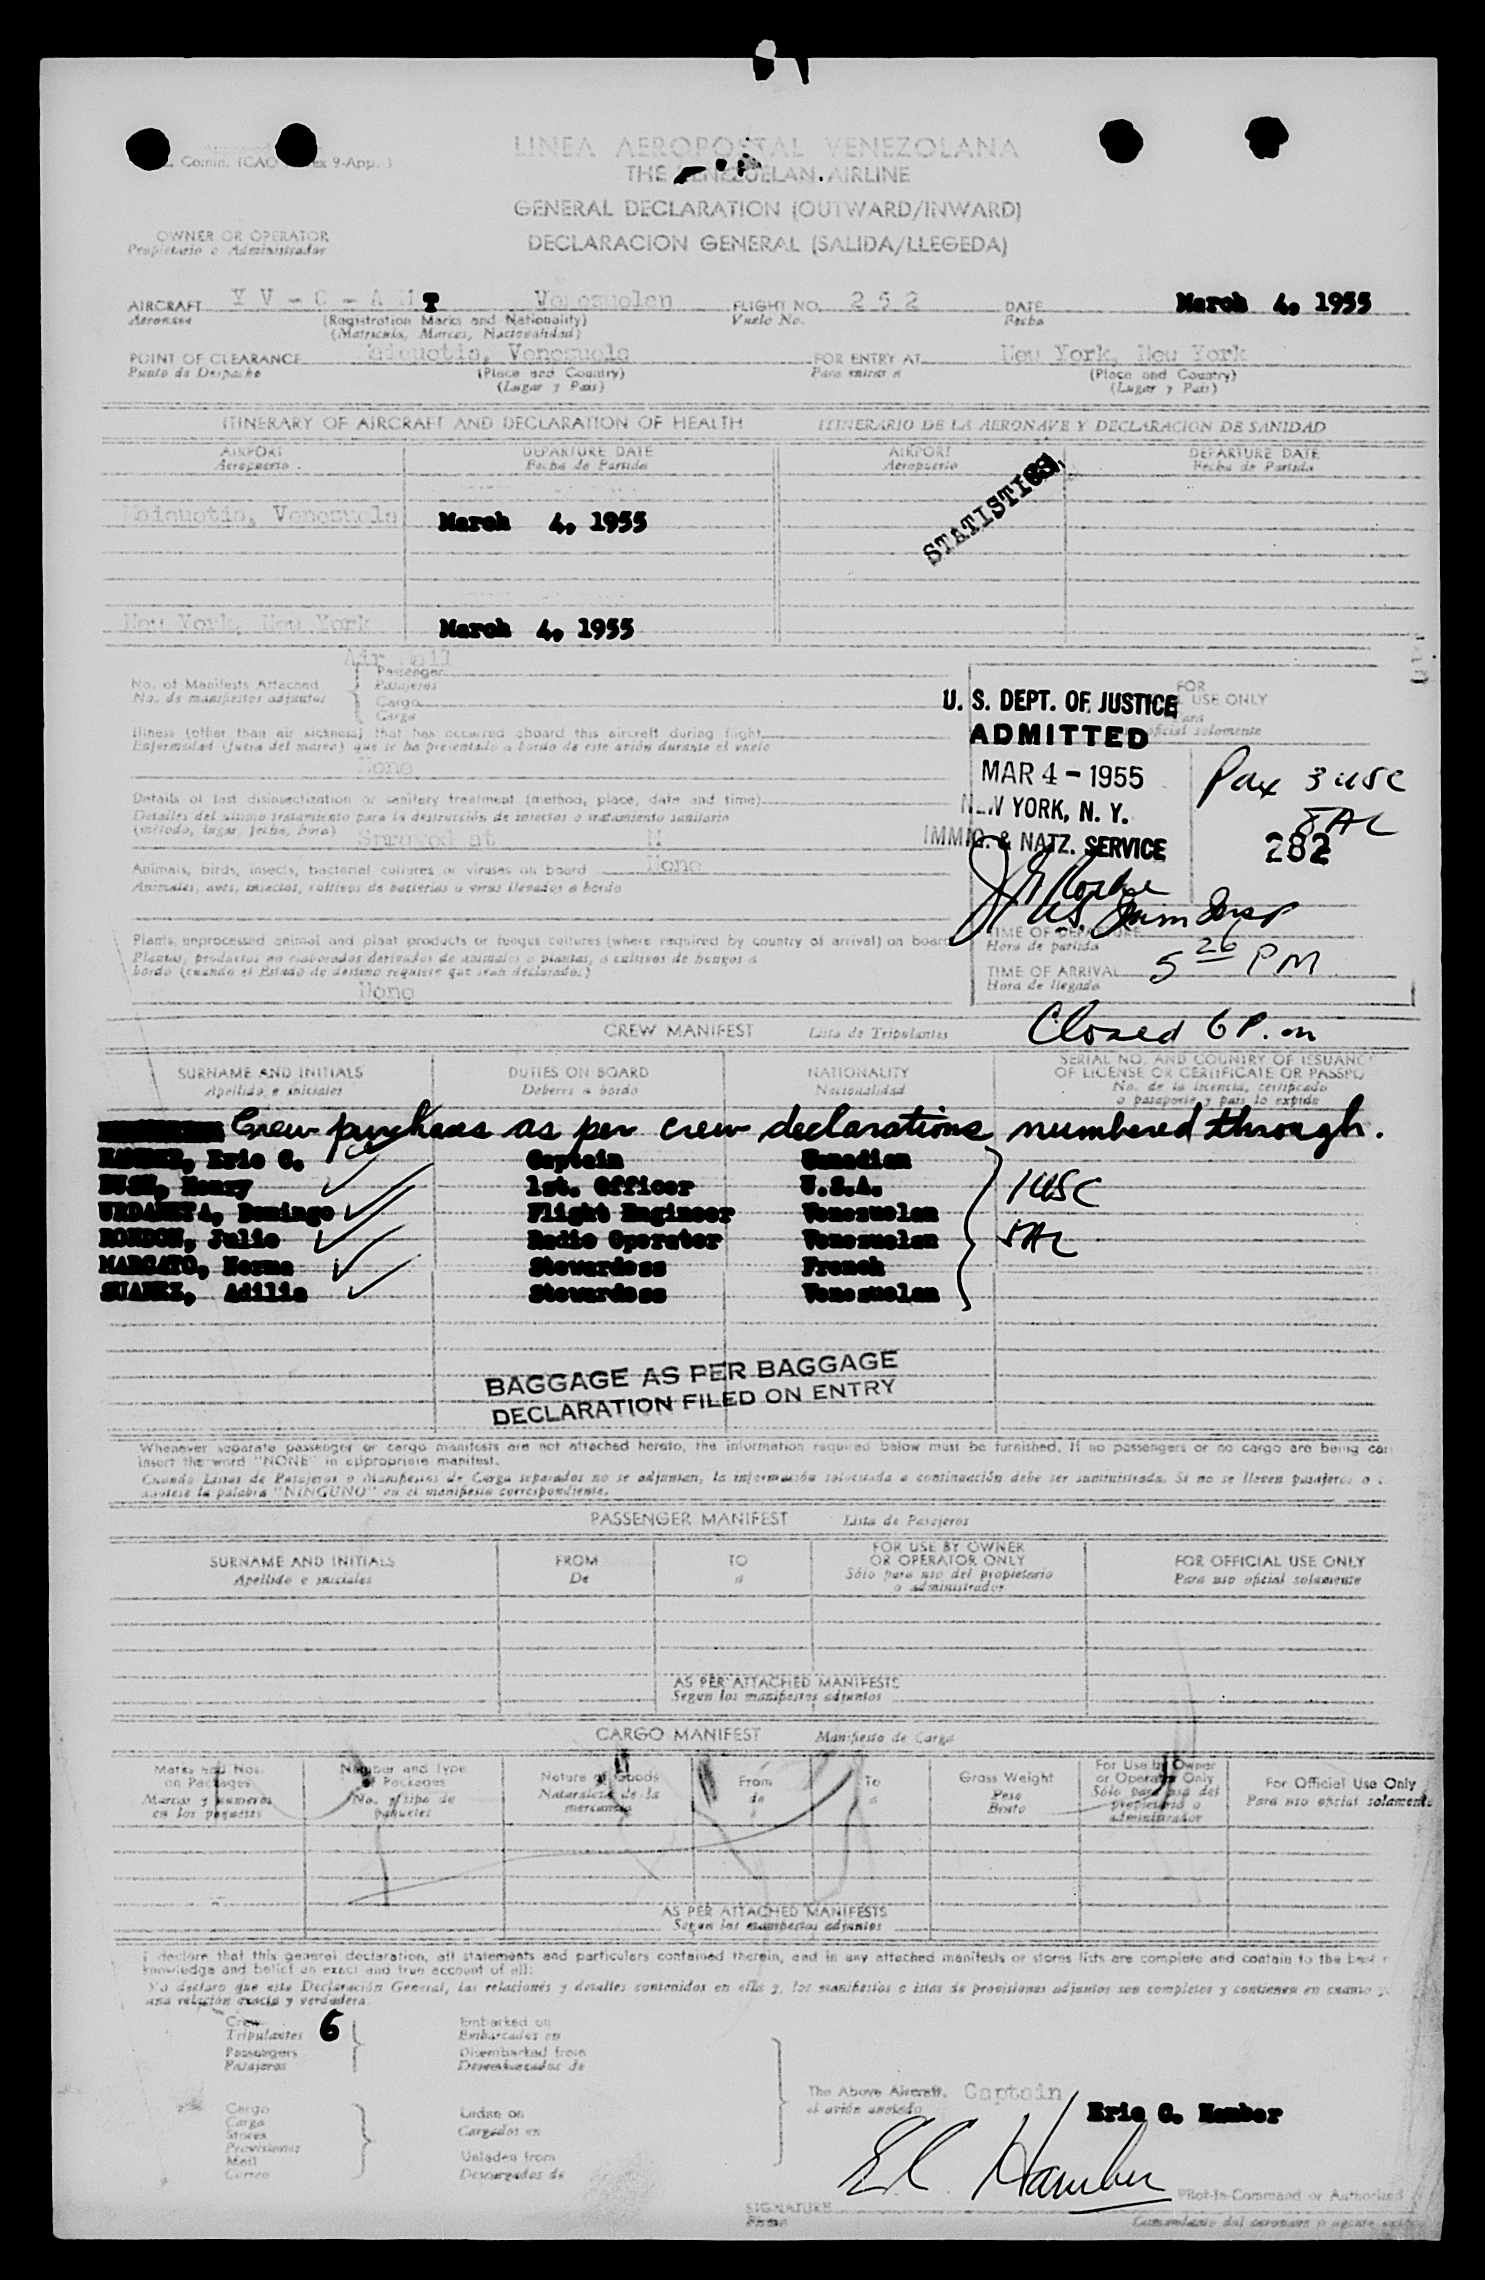 LINEA AEROPOSTAL VENEZOLANA
Comm. ICAO 9-App. 3
THE VENEZUELAN AIRLINE
GENERAL DECLARATION (OUTWARD/INWARD)
DECLARACION GENERAL (SALIDA/LLEGEDA)
OWNER OR OPERATOR
Propietario o Administrador
AIRCRAFT Y V - C - A T Venezuelan FLIGHT NO. 252 DATE March 4, 1955
Aeronave (Registration Marks and Nationality) Vuelo No. Fecha
(Matricula, Marcas, Nacionalidad)
POINT OF CLEARANCE Maiquetia, Venezuela FOR ENTRY AT New York, New York
Punto de Despacho (Place and Country) Para entrar a (Place and Country)
(Lugar y Pais) (Lugar y Pais)
ITINERARY OF AIRCRAFT AND DECLARATION OF HEALTH ITINERARIO DE LA AERONAVE Y DECLARACION DE SANIDAD
AIRPORT DEPARTURE DATE AIRPORT DEPARTURE DATE
Aeropuerto Fecha de Partida Aeropuerto Fecha de Partida
STATISTICS
Maiquetia, Venezuela March 4, 1955
New York, New York March 4, 1955
Air Mail
No. of Manifests Attached Passenger
No. de manifiestos adjuntos Pasajeros
Cargo
Carga
FOR
USE ONLY
oficial solamente
U. S. DEPT. OF JUSTICE
ADMITTED
MAR 4 - 1955
NEW YORK, N. Y.
IMMIG. & NATZ. SERVICE
Pax 3 USC
282
Illness (other than air sickness) that has occurred aboard this aircraft during flight
Enfermedad (fuera del mareo) que se ha presentado a bordo de este avión durante el vuelo
None
Details of last disinsectization or sanitary treatment (method, place, date and time)
Detalles del ultimo tratamiento para la destrucción de insectos o tratamiento sanitario
(método, lugar, fecha, hora) Sprayed at M
Animals, birds, insects, bacterial cultures or viruses on board None
Animales, aves, insectos, cultivos de bacterias o virus llevados a bordo
Plants, unprocessed animal and plant products or fungus cultures (where required by country of arrival) on board
Plantas, productos no elaborados derivados de animales o plantas, o cultivos de hongos a
bordo (cuando el Estado de destino requiere que sean declarados.)
None
TIME OF DEPARTURE
Hora de partida
TIME OF ARRIVAL 5 26 PM
Hora de llegada
Closed 6 P.m
CREW MANIFEST Lista de Tripulantes
SURNAME AND INITIALS DUTIES ON BOARD NATIONALITY SERIAL NO. AND COUNTRY OF ISSUANC
OF LICENSE OR CERTIFICATE OR PASSPO
Apellido e iniciales Deberes a bordo Nacionalidad No. de la licencia, certificado
o pasaporte y pais lo expide
Crew purchases as per crew declarations numbered through.
HAMBER, Eric C. Captain Canadian
BUSH, Henry 1st. Officer U.S.A. 1 USC
URDANETA, Domingo Flight Engineer Venezuelan
RONDON, Julio Radio Operator Venezuelan 5 AL
MARCATO, Norma Stewardess French
SUAREZ, Adilia Stewardess Venezuelan
BAGGAGE AS PER BAGGAGE
DECLARATION FILED ON ENTRY
Whenever separate passenger or cargo manifests are not attached hereto, the information required below must be furnished. If no passengers or no cargo are being car
insert the word "NONE" in appropriate manifest.
Cuando Listas de Pasajeros o Manifiestos de Carga separados no se adjuntan, la información solicitada a continuación debe ser suministrada. Si no se lleven pasajeros o
anotese la palabra "NINGUNO" en el manifiesto correspondiente.
PASSENGER MANIFEST Lista de Pasajeros
SURNAME AND INITIALS FROM TO FOR USE BY OWNER OR OPERATOR ONLY FOR OFFICIAL USE ONLY
Apellido e iniciales De a Sólo para uso del propietario o administrador Para uso oficial solamente
AS PER ATTACHED MANIFESTS
Segun los manifiestos adjuntos
CARGO MANIFEST Manifiesto de Carga
Marks and Nos. on Packages Number and Type of Packages Nature of Goods From To Gross Weight For Use by Owner or Operator Only For Official Use Only
Marcas y numeros en los paquetes No. y tipo de paquetes Naturaleza de la mercancia de a Peso Bruto Sólo para uso del propietario o administrador Para uso oficial solamente
AS PER ATTACHED MANIFESTS
Segun los manifiestos adjuntos
I declare that this general declaration, all statements and particulars contained therein, and in any attached manifests or stores lists are complete and contain to the best
knowledge and belief an exact and true account of all:
Yo declaro que este Declaración General, las relaciones y detalles contenidos en ella y, los manifiestos o listas de provisiones adjuntos son completos y contienen en cuanto
una relación exacta y verdadera
Crew 6 Embarked on
Tripulantes Embarcados en
Passengers Disembarked from
Pasajeros Desembarcados de
The Above Aircraft. Captain Eric C. Hamber
Cargo Laden on
Carga Cargados en
Stores
Provisiones
Mail Unladen from
Correo Descargados de
E C Hamber
SIGNATURE Pilot-in-Command or Authorized
Firma